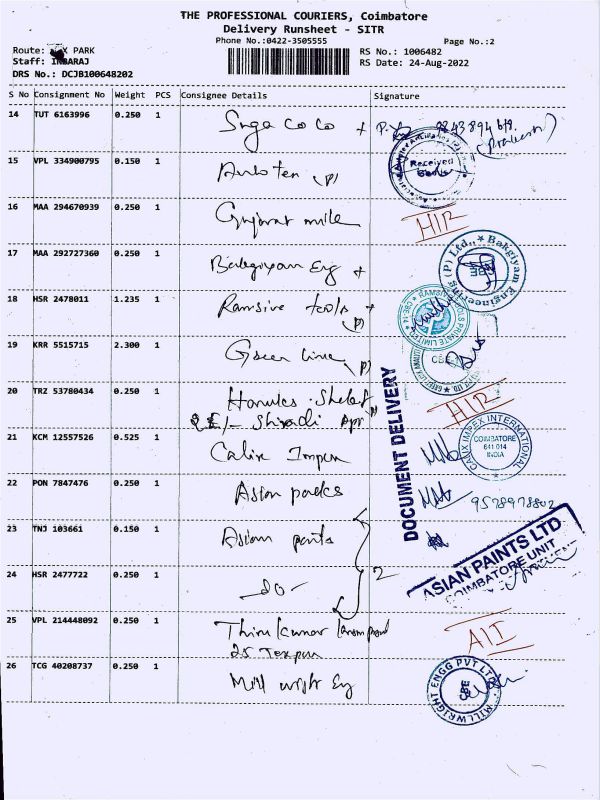 THE PROFESSIONAL COURIERS, Coimbatore
Delivery Runsheet - SITR
Phone No.:0422-3505555
Page No.:2
Route: PARK
RS No.: 1006482
Staff: INBARAJ
RS Date: 24-Aug-2022
DRS No.: DCJB100648202
S No Consignment No Weight PCS Consignee Details Signature
14 TUT 6163996 0.250 1
(Prakash)
15 VPL 334900795 0.150 1 (P)
Received
16 MAA 294670939 0.250 1 Gujarat
17 MAA 292727360 0.250 1 Bakgiyam Eng
Bakgiyam Engineering (P) Ltd.,
18 HSR 2478011 1.235 1 Ramsive tools + (P)
19 KRR 5515715 2.300 1 Green line (P)
CBE
20 TRZ 53780434 0.250 1
21 KCM 12557526 0.525 1 Calix Impex
CALIX IMPEX INTERNATIONAL
COIMBATORE
641 014
INDIA
DOCUMENT DELIVERY
22 PON 7847476 0.250 1 Asian packs
9528978802
23 TNJ 103661 0.150 1 Asian paints
24 HSR 2477722 0.250 1 -do- 2
ASIAN PAINTS LTD
COIMBATORE UNIT
25 VPL 214448092 0.250 1 Thirukumar
25 Texpun
26 TCG 40208737 0.250 1 Mill wright Eng
MILLWRIGHT ENGG PVT LTD
CBE